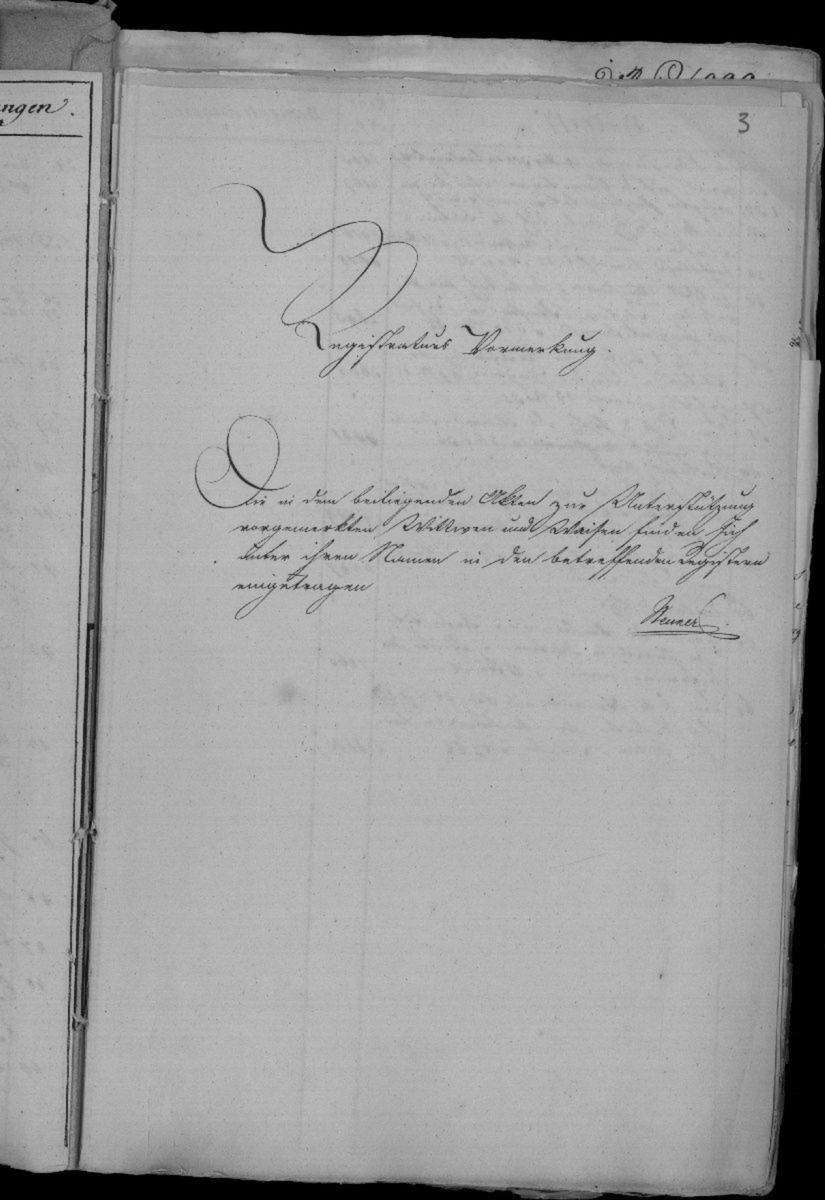 ungen.
3
Registraturs Vormerkung.
Die in dem beiliegenden Akten zur Unterstützung
vorgemerkten Wittwen und Waisen finden sich
unter ihren Namen in den betreffenden Registern
eingetragen